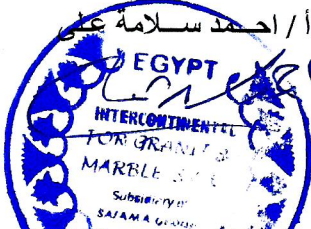 أ / احمد سلامة على
EGYPT
INTERCONTINENTAL
FOR GRANITE &
MARBLE
Subsidiary of
SALAMA GROUP